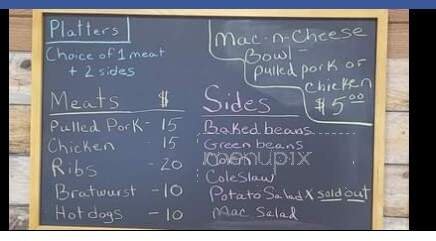 Platters
Choice of 1 meat
+ 2 sides
Mac-n-Cheese
Bowl
Pulled pork or
chicken
$5.00
Meats $
Pulled Pork - 15
Chicken 15
Ribs - 20
Bratwurst - 10
Hotdogs - 10
Sides
Baked beans
Green beans
Corn
menupix
ColeSlaw
Potato Salad X sold out
Mac Salad